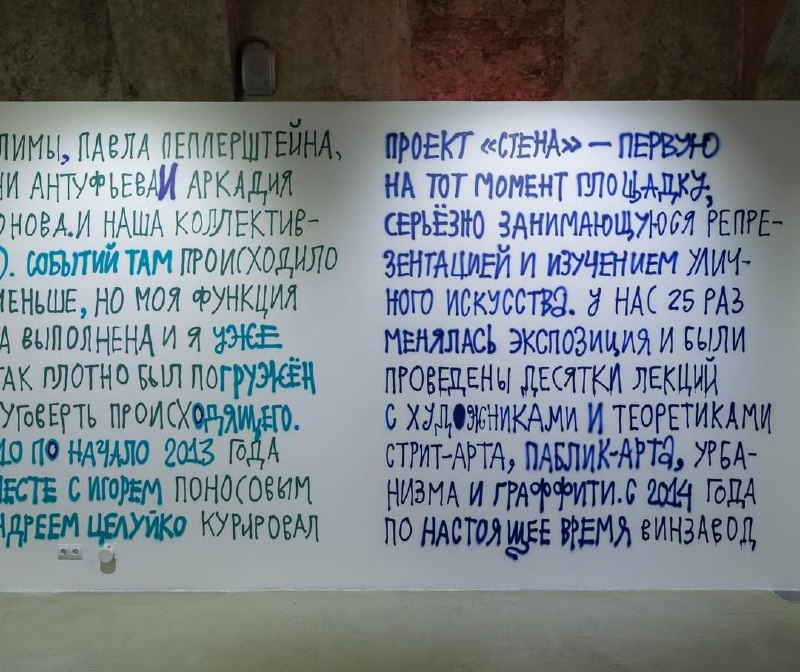 ЛИМЫ, ПАВЛА ПЕППЕРШТЕЙНА,
НИ АНТУФЬЕВА И АРКАДИЯ
ОНОВА. И НАША КОЛЛЕКТИВ-
). СОБЫТИЙ ТАМ ПРОИСХОДИЛО
МЕНЬШЕ, НО МОЯ ФУНКЦИЯ
А ВЫПОЛНЕНА И Я УЖЕ
ТАК ПЛОТНО БЫЛ ПОГРУЖЁН
УГОВЕРТЬ ПРОИСХОДЯЩЕГО.
10 ПО НАЧАЛО 2013 ГОДА
МЕСТЕ С ИГОРЕМ ПОНОСОВЫМ
НДРЕЕМ ЦЕЛУЙКО КУРИРОВАЛ
ПРОЕКТ «СТЕНА» — ПЕРВУЮ
НА ТОТ МОМЕНТ ПЛОЩАДКУ,
СЕРЬЁЗНО ЗАНИМАЮЩУЮСЯ РЕПРЕ-
ЗЕНТАЦИЕЙ И ИЗУЧЕНИЕМ УЛИЧ-
НОГО ИСКУССТВА. У НАС 25 РАЗ
МЕНЯЛАСЬ ЭКСПОЗИЦИЯ И БЫЛИ
ПРОВЕДЕНЫ ДЕСЯТКИ ЛЕКЦИЙ
С ХУДОЖНИКАМИ И ТЕОРЕТИКАМИ
СТРИТ-АРТА, ПАБЛИК-АРТА, УРБА-
НИЗМА И ГРАФФИТИ. С 2014 ГОДА
ПО НАСТОЯЩЕЕ ВРЕМЯ ВИНЗАВОД